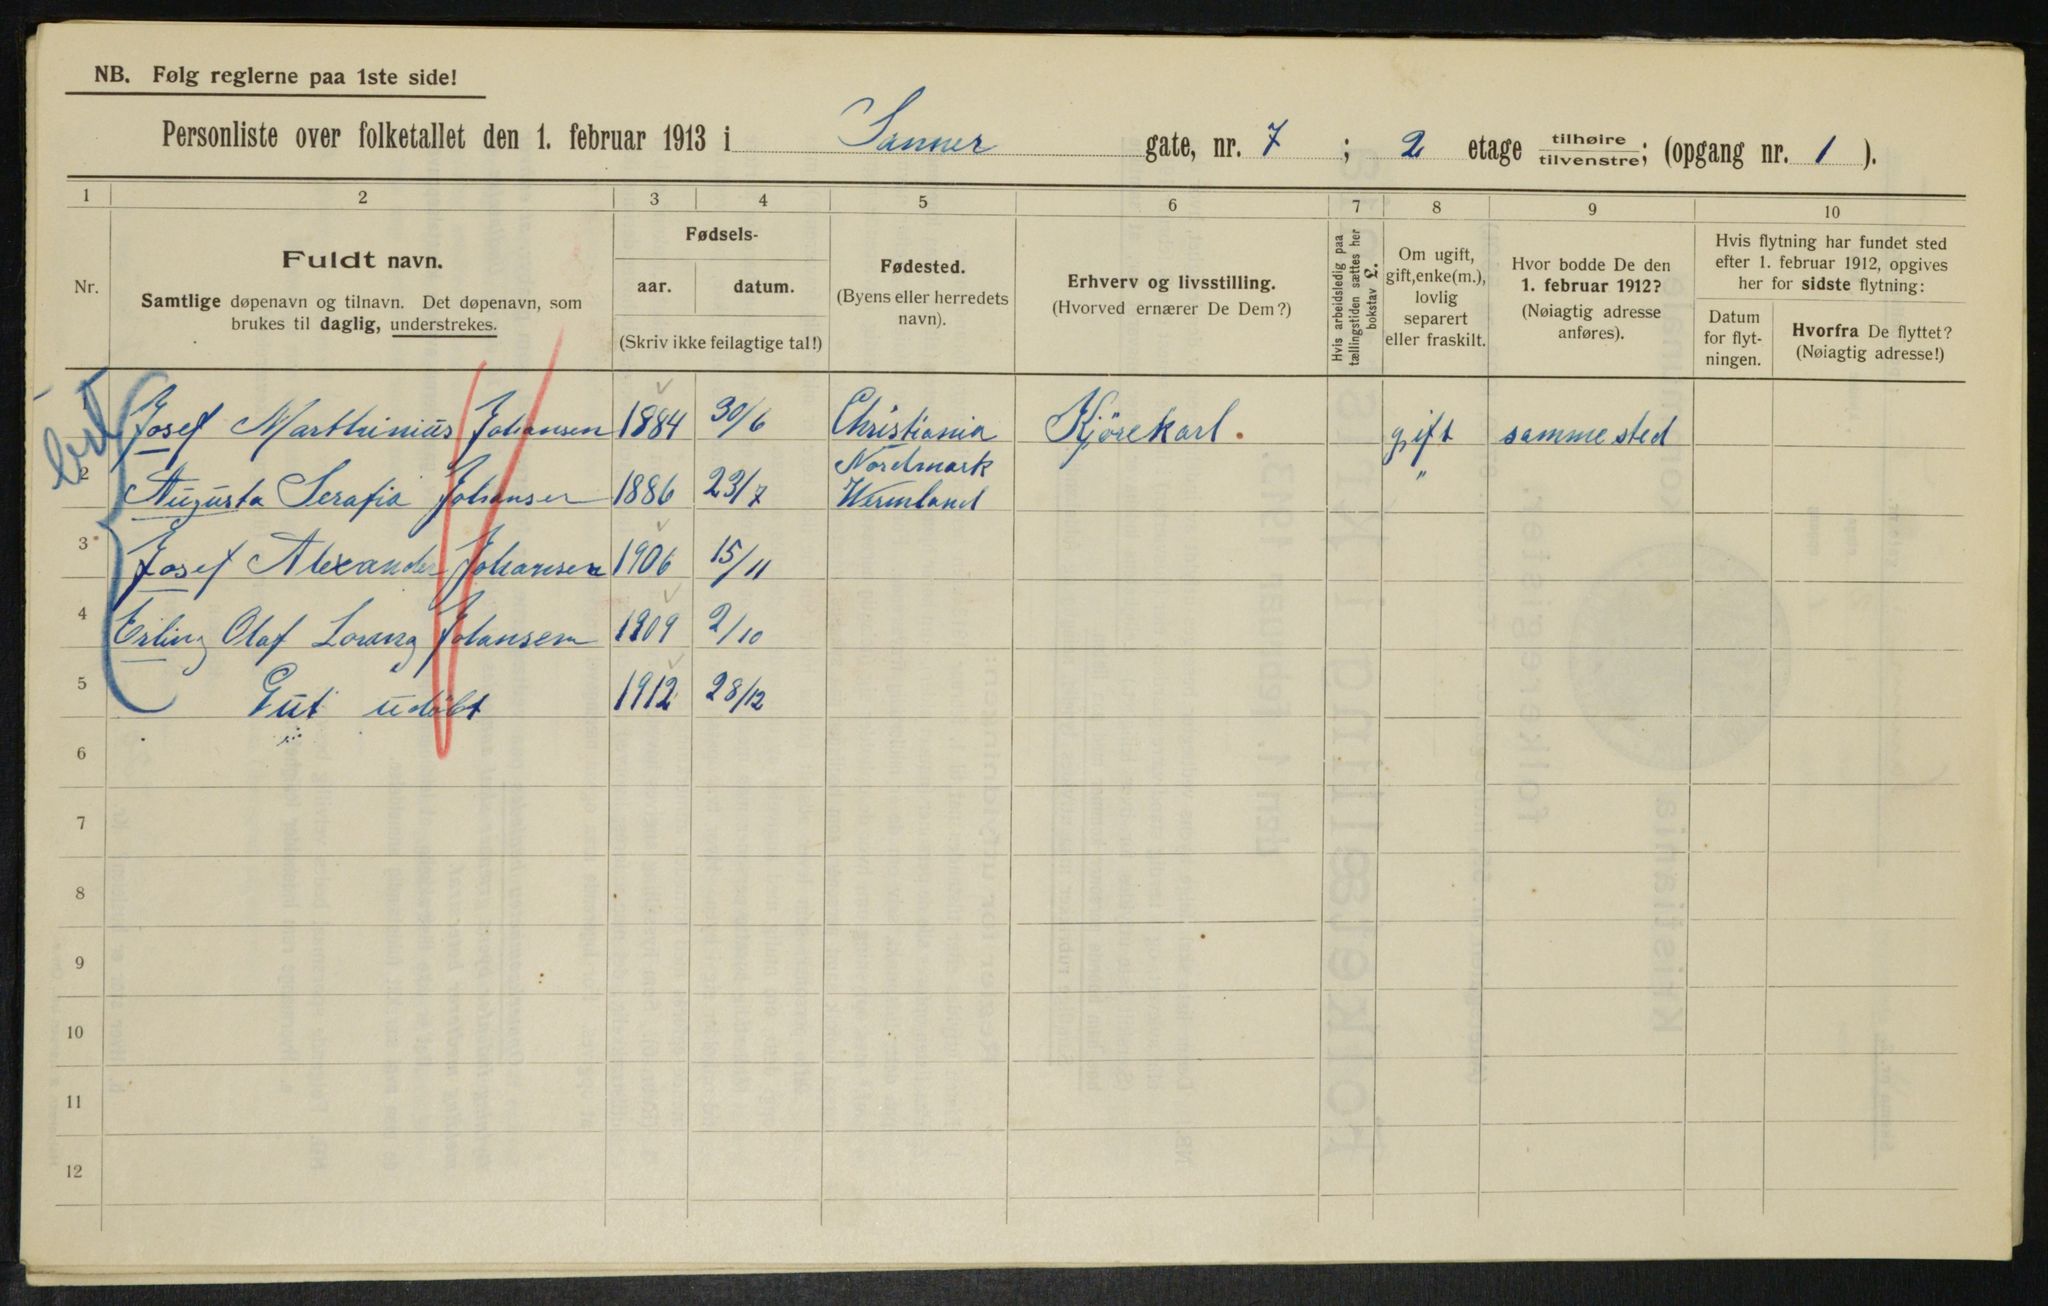 NB. Følg reglerne paa 1ste side!
Personliste over folketallet den 1. februar 1913 i Sanner gate, nr. 7 ; 2 etage tilhøire tilvenstre; (opgang nr. 1 ).
1 2 3 4 5 6 7 8 9 10
Nr.
Fuldt navn.
Samtlige døpenavn og tilnavn. Det døpenavn, som
brukes til daglig, understrekes.
Fødsels-
aar. datum.
(Skriv ikke feilagtige tal!)
Fødested.
(Byens eller herredets
navn).
Erhverv og livsstilling.
(Hvorved ernærer De Dem?)
Hvis arbeidsledig paa
tællingstiden sættes her
bokstav £.
Om ugift,
gift, enke(m.),
lovlig
separert
eller fraskilt.
Hvor bodde De den
1. februar 1912?
(Nøiagtig adresse
anføres).
Hvis flytning har fundet sted
efter 1. februar 1912, opgives
her for sidste flytning:
Datum
for flyt-
ningen.
Hvorfra De flyttet?
(Nøiagtig adresse!)
Josef Marthinius Johansen 1884 30/6 Christiania Kjørekarl. gift samme sted
2 Augusta Serafia Johansen 1886 23/7 Nordmark
Wermland "
3 Josef Alexander Johansen 1906 15/11
4 Erling Olaf Lorang Johansen 1909 2/10
5 Gut udøbt 1912 28/12
6
7
8
9
10
11
12